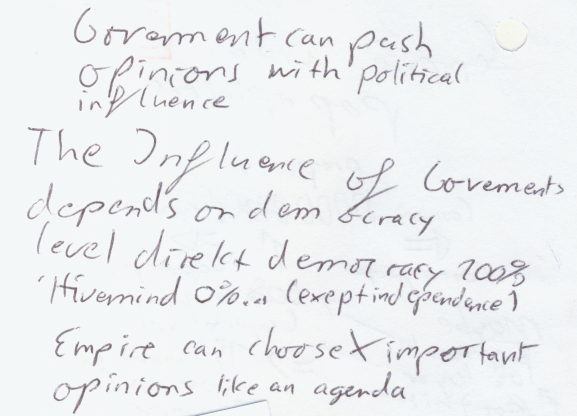 Goverment can push
opinions with political
influence
The Influence of Goverments
depends on democracy
level direkt democracy 100%
Hivemind 0%... (exept independence)
Empire can choose X important
opinions like an agenda